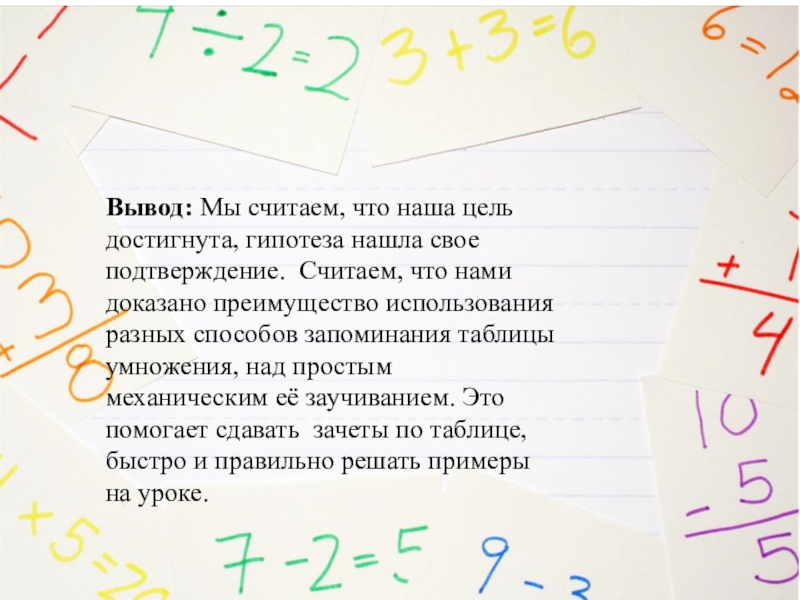 ÷ 2 = 2
3 + 3 = 6
6 = 12
Вывод: Мы считаем, что наша цель
достигнута, гипотеза нашла свое
подтверждение.  Считаем, что нами
доказано преимущество использования
разных способов запоминания таблицы
умножения, над простым
механическим её заучиванием. Это
помогает сдавать  зачеты по таблице,
быстро и правильно решать примеры
на уроке.
3
8
+
4
10
- 5
5
+ 5 = 20
7 - 2 = 5
9 - 3